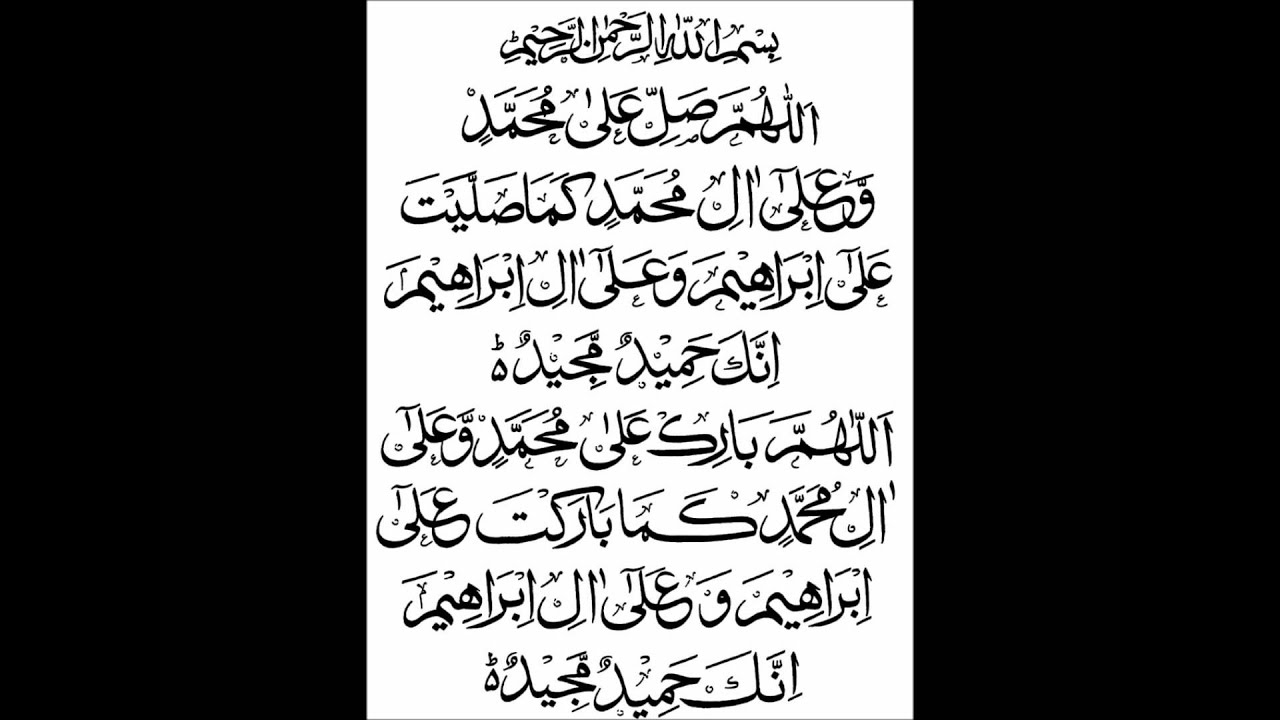 بِسْمِ اللّٰهِ الرَّحْمٰنِ الرَّحِيْمِؕ
اَللّٰهُمَّ صَلِّ عَلٰى مُحَمَّدٍ
وَّعَلٰٓى اٰلِ مُحَمَّدٍ كَمَا صَلَّيْتَ
عَلٰٓى اِبْرَاهِيْمَ وَعَلٰٓى اٰلِ اِبْرَاهِيْمَ
اِنَّكَ حَمِيْدٌ مَّجِيْدٌ ؕ
اَللّٰهُمَّ بَارِكْ عَلٰى مُحَمَّدٍ وَّعَلٰٓى
اٰلِ مُحَمَّدٍ كَمَا بَارَكْتَ عَلٰٓى
اِبْرَاهِيْمَ وَ عَلٰٓى اٰلِ اِبْرَاهِيْمَ
اِنَّكَ حَمِيْدٌ مَّجِيْدٌ ؕ